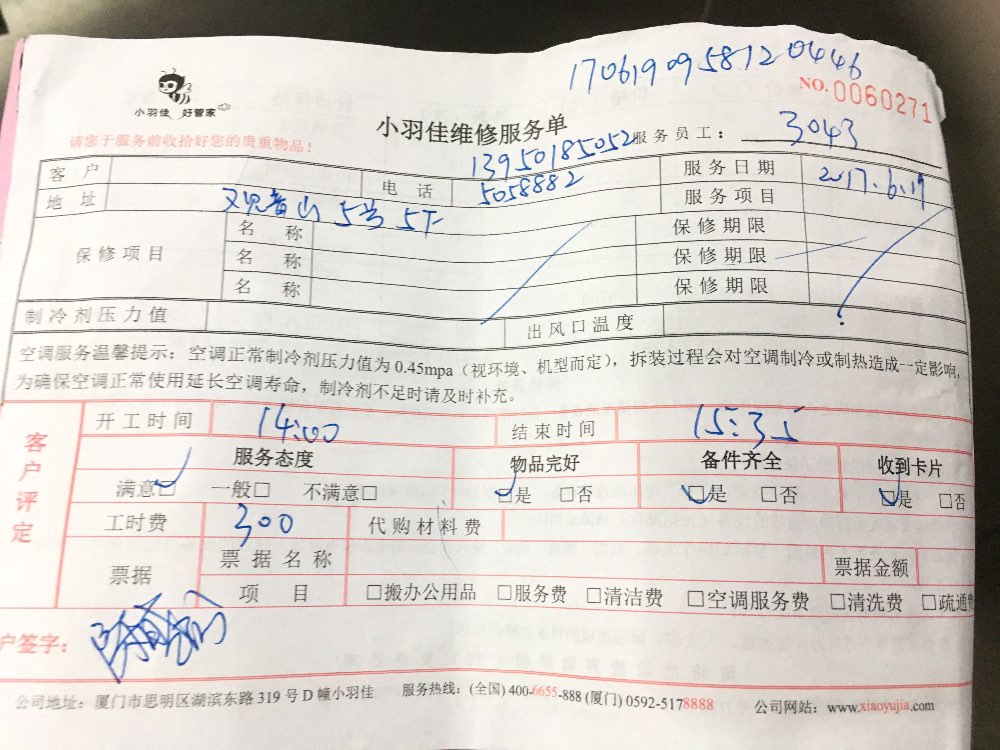 170619095812 0446
NO. 0060271
小羽佳 好管家
小羽佳维修服务单
请您于服务前收拾好您的贵重物品！
服务员工： 3043
客户 电话 13950185052 5058882 服务日期 2017.6.19
地址 观音山5号5F 服务项目
保修项目 名称 保修期限
名称 保修期限
名称 保修期限
制冷剂压力值 出风口温度
空调服务温馨提示：空调正常制冷剂压力值为 0.45mpa（视环境、机型而定），拆装过程会对空调制冷或制热造成一定影响,
为确保空调正常使用延长空调寿命，制冷剂不足时请及时补充。
客户评定
开工时间 14:00 结束时间 15:35
服务态度 物品完好 备件齐全 收到卡片
满意□ 一般□ 不满意□ □是 □否 □是 □否 □是 □否
工时费 300 代购材料费
票据 票据名称 票据金额
项目 □搬办公用品 □服务费 □清洁费 □空调服务费 □清洗费 □疏通费
户签字：
公司地址：厦门市思明区湖滨东路 319 号 D 幢小羽佳 服务热线：(全国) 400-6655-888 (厦门) 0592-5178888 公司网站：www.xiaoyujia.com